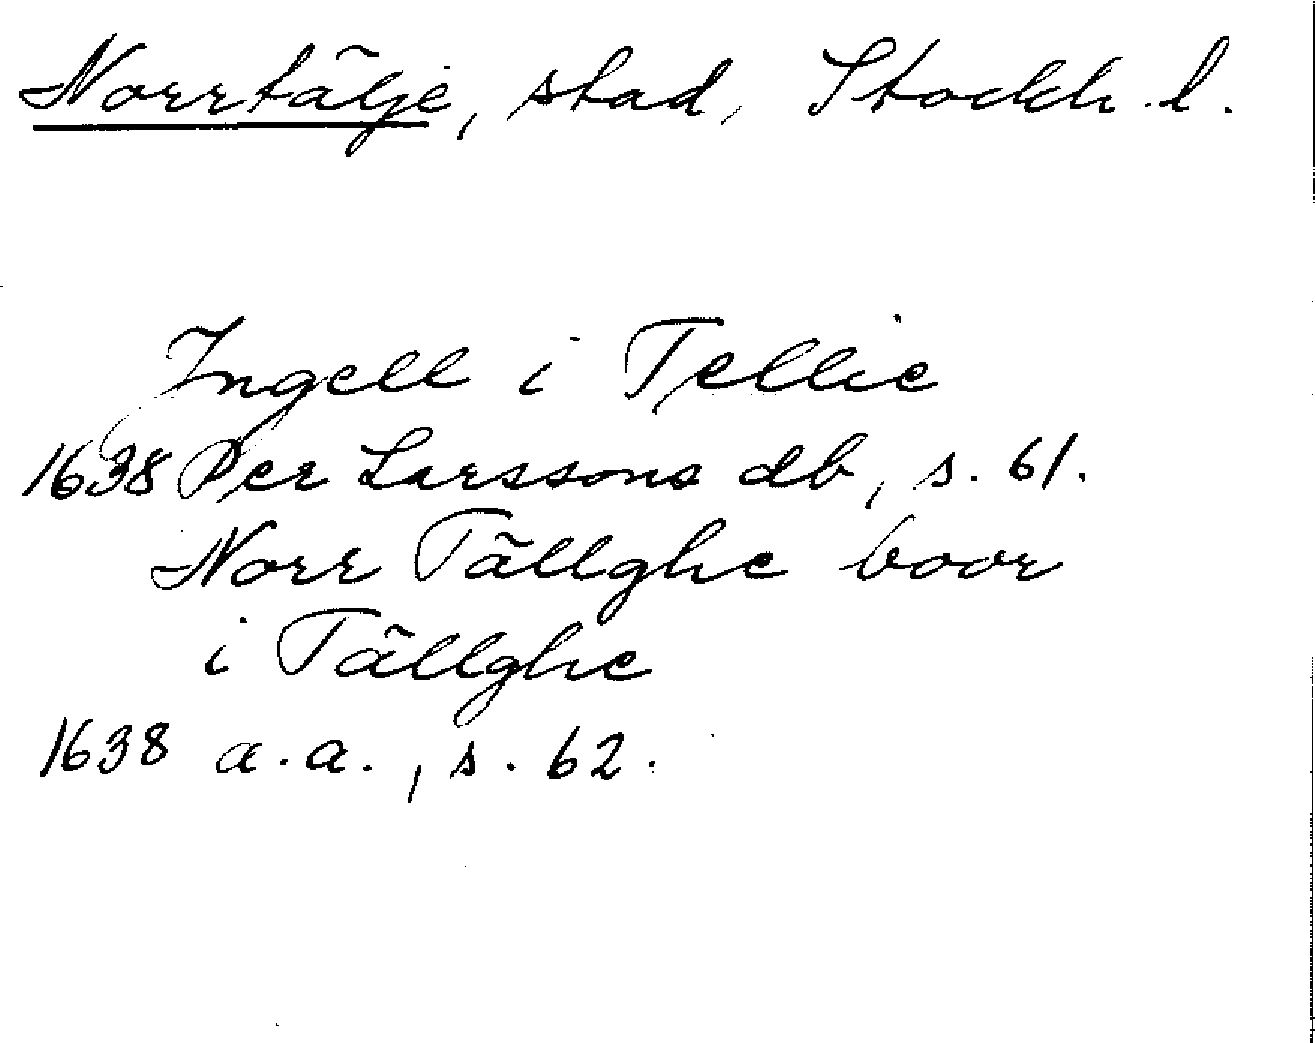 Norrtälje, stad, Stockh. l.
Ingell i Tellie
1638 Per Larssons db, s. 61.
Norr Tällghe boor
i Tällghe
1638 a.a., s. 62.